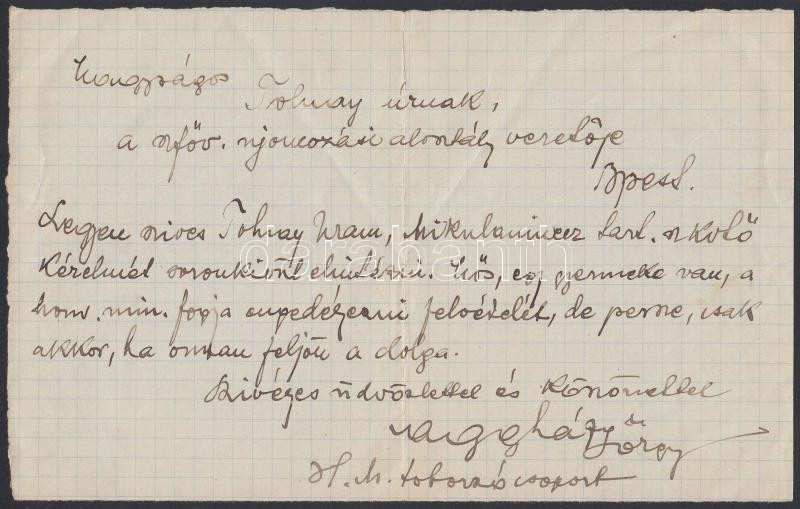 Nagyságos
Tolnay úrnak,
a szföv. ujoncozási alosztály vezetője
Bpest.
Legyen szives Tolnay Uram, Mikulanincz tart. szkvtő
kérelmét soronkivűl elintézni. Nős, egy gyermeke van, a
hon. min. fogja engedélyezni felvételét, de persze, csak
akkor, ha onnan feljön a dolga.
Szivélyes üdvözlettel és köszönettel
Nagyházy György
H. M. toborzó csoport
darabanth